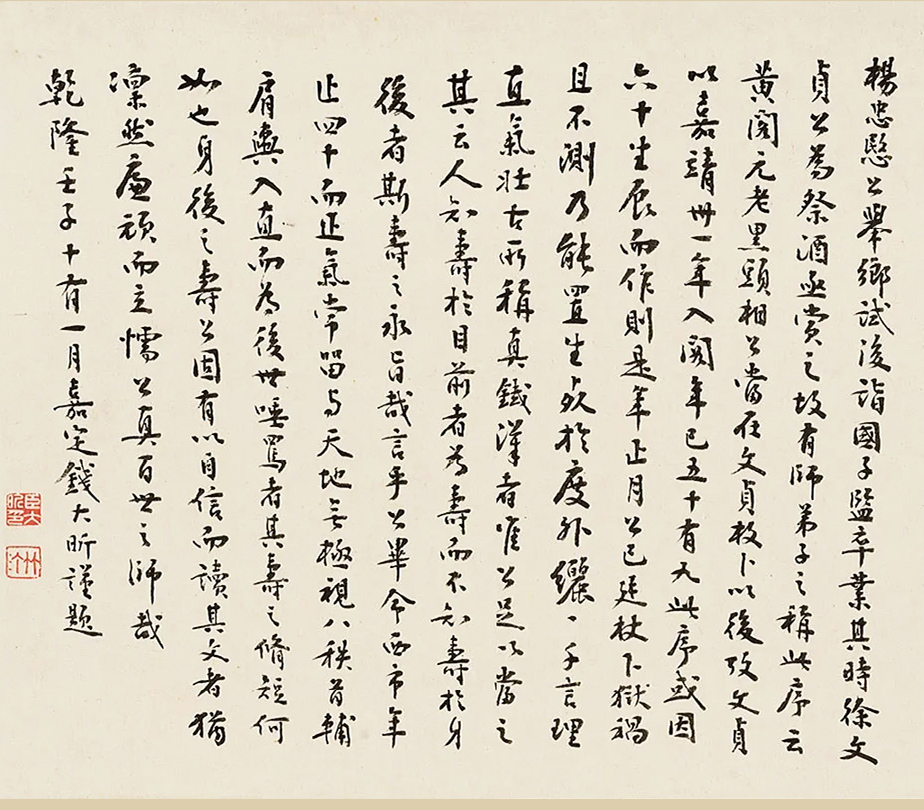 楊忠愍公舉鄉試後詣國子監卒業其時徐文
貞公為祭酒亟賞之故有師弟子之稱此序云
黃閣元老黑頭相公當在文貞枚卜以後攷文貞
以嘉靖卅一年入閣年已五十有九此序或因
六十生辰而作則是年正月公已廷杖下獄禍
且不測乃能置生死於度外纚〻千言理
直氣壯古所稱真鐵漢者唯公足以當之
其云人知壽於目前者為壽而不知壽於身
後者斯壽之永旨哉言乎公畢命西市年
止四十而正氣常留与天地无極視八秩首輔
肩輿入直而為後世唾罵者其壽之脩短何
如也身後之壽公固有以自信而讀其文者猶
凜然廉頑而立懦公真百世之師哉
乾隆壬子十有一月嘉定錢大昕謹題
竹汀